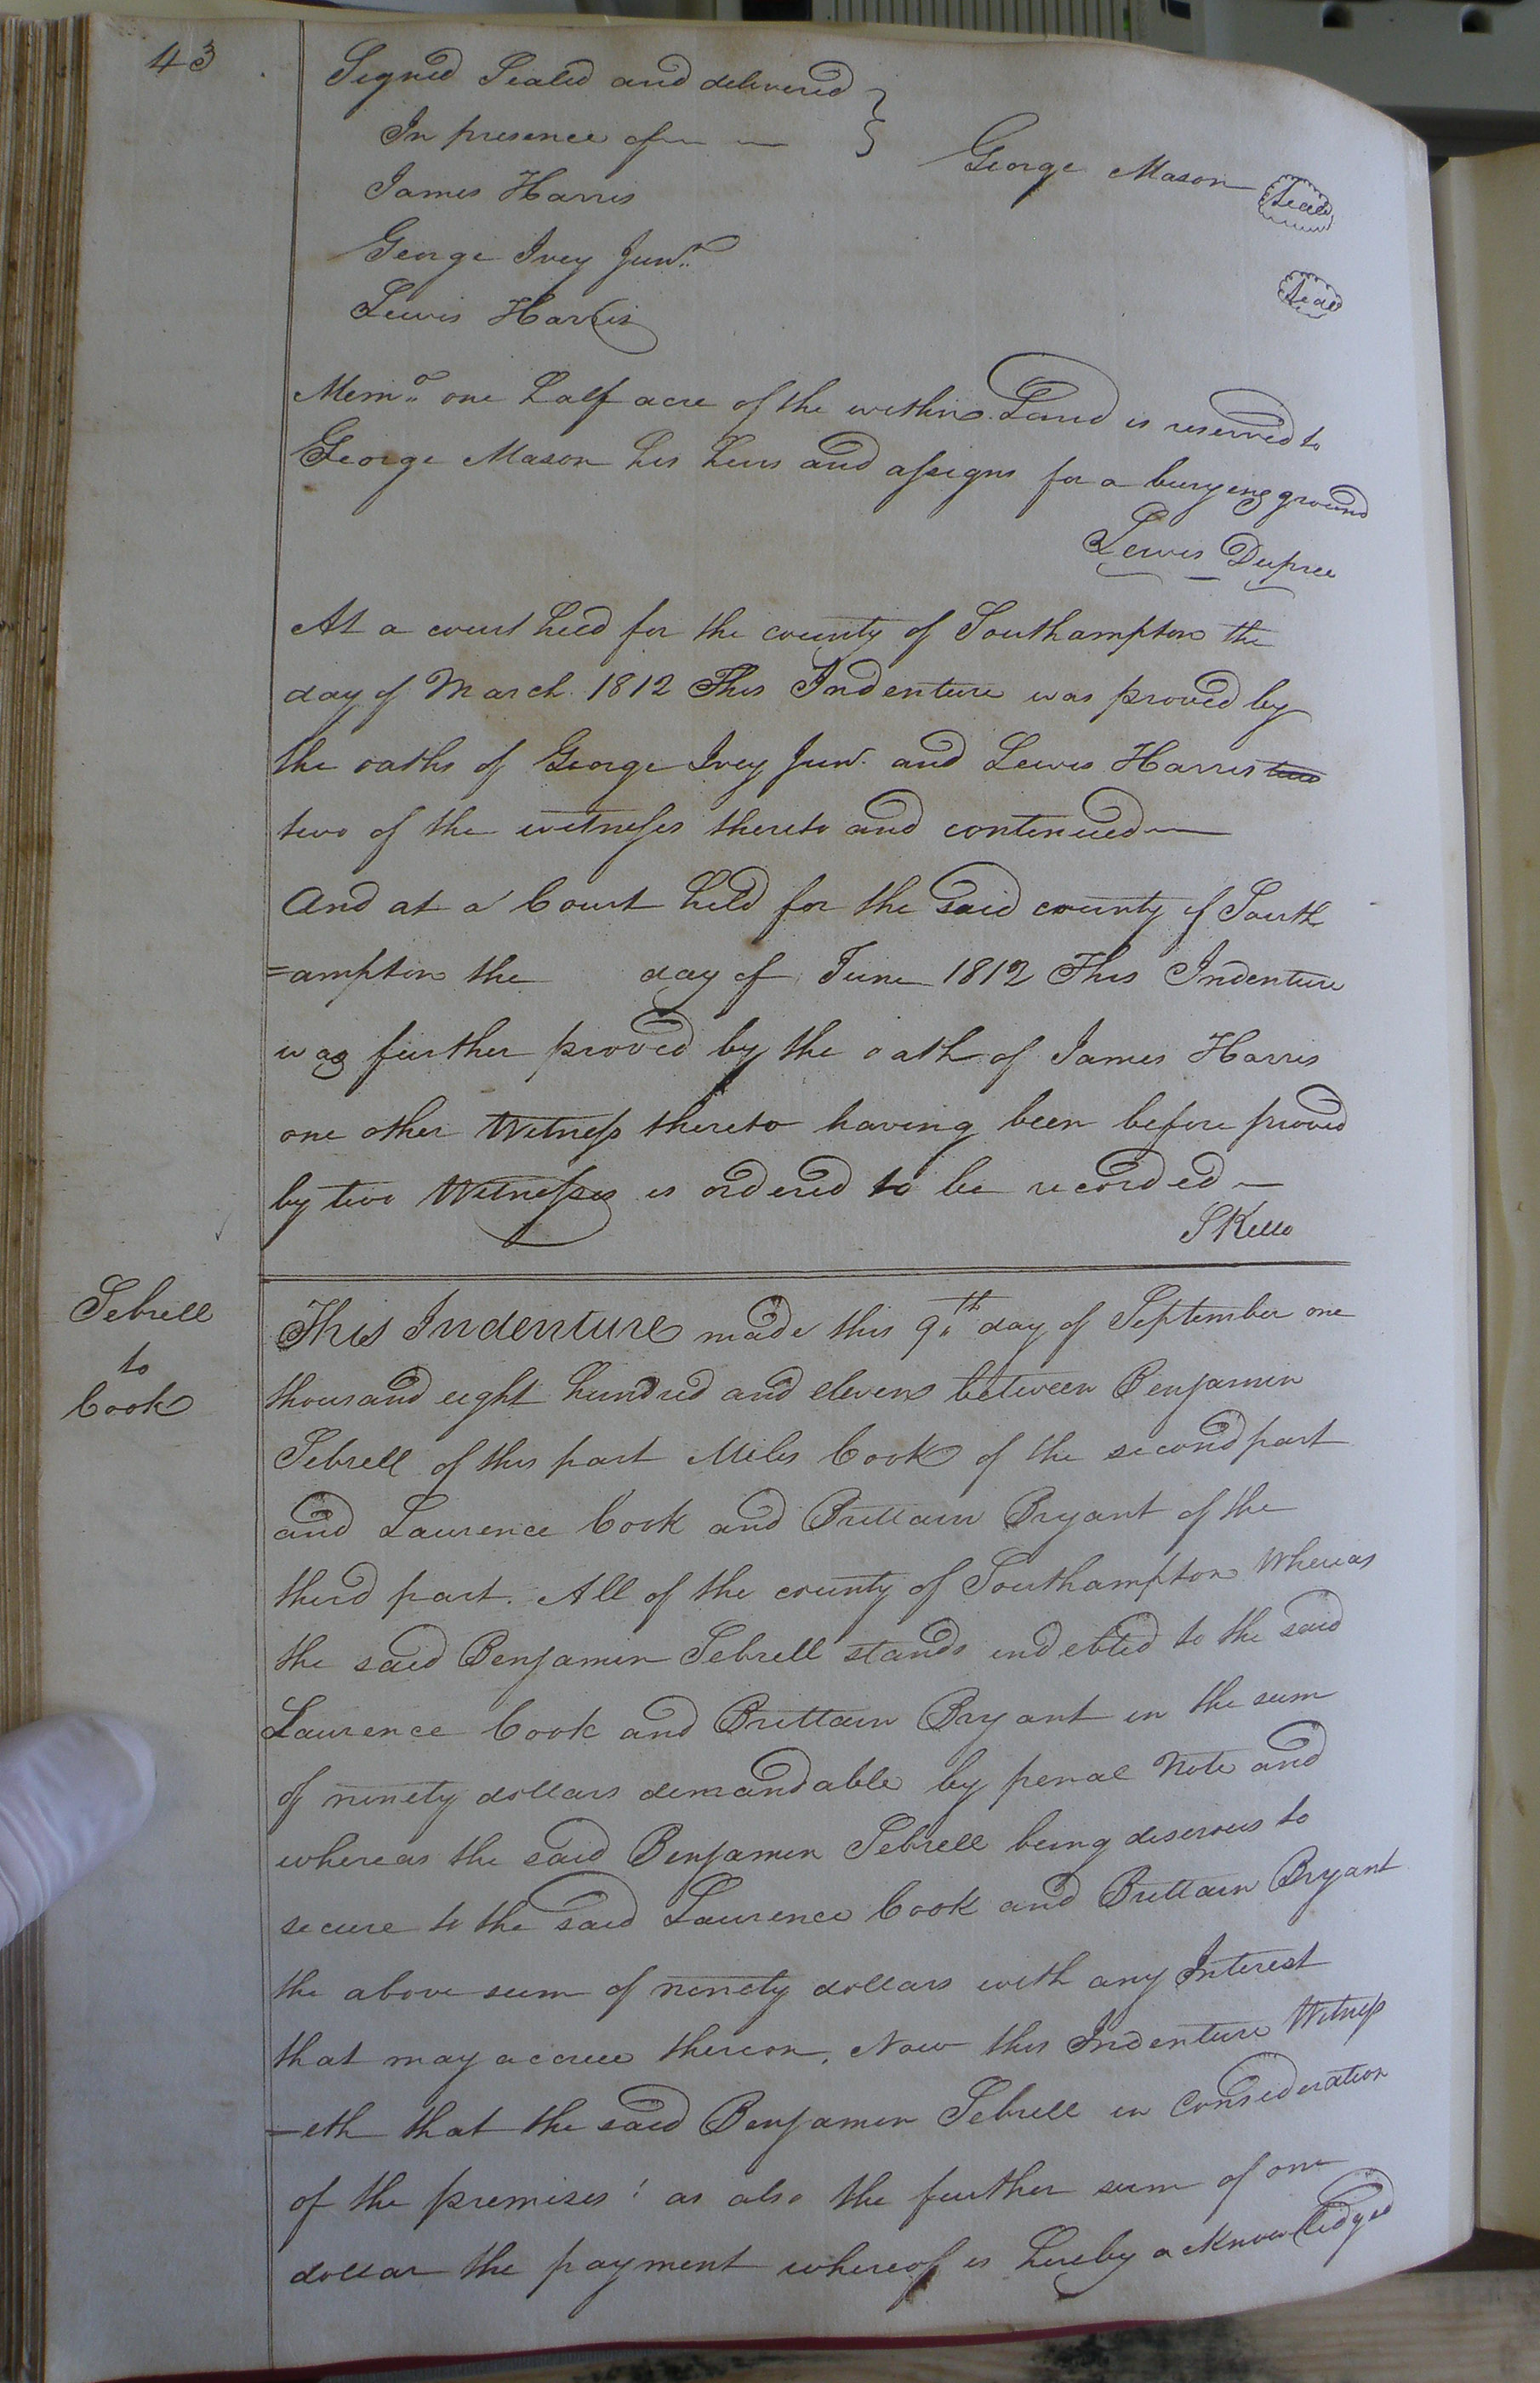 43
Signed Sealed and delivered }
In presence of
James Harris
George Ivey Junr.
Lewis Harris
George Mason Seal
Seal
Memo. one half acre of the within Land is reserved to
George Mason his heirs and assigns for a burying ground
Lewis Dupree
At a court held for the county of Southampton the
day of March 1812 This Indenture was proved by
the oaths of George Ivey Junr. and Lewis Harris two
two of the witnesses thereto and continued
And at a Court held for the said county of South
=ampton the day of June 1812 This Indenture
was further proved by the oath of James Harris
one other Witness thereto having been before proved
by two Witnesses is ordered to be recorded
S Kello
Sebrell
to
Cook
This Indenture made this 9th day of September one
thousand eight hundred and eleven between Benjamin
Sebrell of this part Miles Cook of the second part
and Laurence Cook and Brittain Bryant of the
third part. All of the county of Southampton Whereas
the said Benjamin Sebrell stands indebted to the said
Laurence Cook and Brittain Bryant in the sum
of ninety dollars demandable by penal Note and
whereas the said Benjamin Sebrell being desirous to
secure to the said Laurence Cook and Brittain Bryant
the above sum of ninety dollars with any Interest
that may accrue thereon, Now this Indenture Witness
=eth that the said Benjamin Sebrell in Consideration
of the premises ! as also the further sum of one
dollar the payment whereof is hereby acknowledged